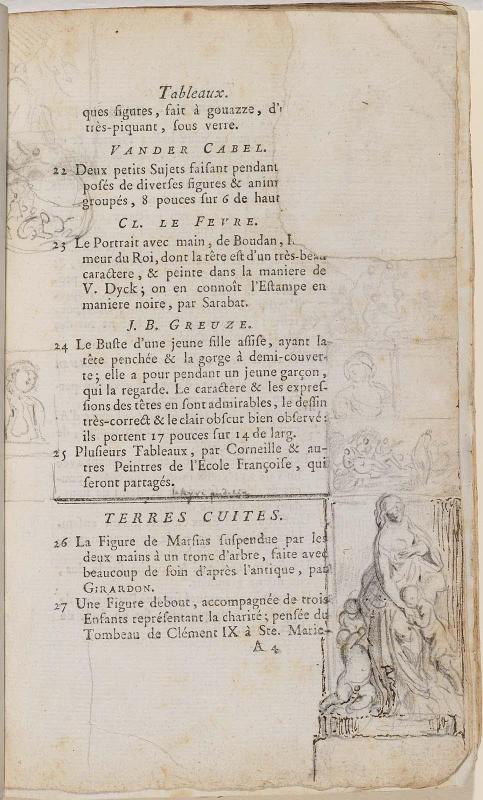 Tableaux.
ques figures, fait à gouazze, d'
très-piquant, sous verre.
VANDER CABEL.
22 Deux petits Sujets faisant pendant
posés de diverses figures & anim
groupés, 8 pouces sur 6 de haut
CL. LE FEVRE.
23 Le Portrait avec main, de Boudan, I
meur du Roi, dont la tête est d'un très-beau
caractere, & peinte dans la maniere de
V. Dyck; on en connoît l'Estampe en
maniere noire, par Sarabat.
J. B. GREUZE.
24 Le Buste d'une jeune fille assise, ayant la
tête penchée & la gorge à demi-couver-
te; elle a pour pendant un jeune garçon,
qui la regarde. Le caractere & les expres-
sions des têtes en sont admirables, le dessin
très-correct & le clair obscur bien observé:
ils portent 17 pouces sur 14 de larg.
25 Plusieurs Tableaux, par Corneille & au-
tres Peintres de l'École Françoise, qui
seront partagés.
TERRES CUITES.
26 La Figure de Marsias suspendue par les
deux mains à un tronc d'arbre, faite avec
beaucoup de soin d'après l'antique, par
GIRARDON.
27 Une Figure debout, accompagnée de trois
Enfants représentant la charité; pensée du
Tombeau de Clément IX à Ste. Marie-
A 4